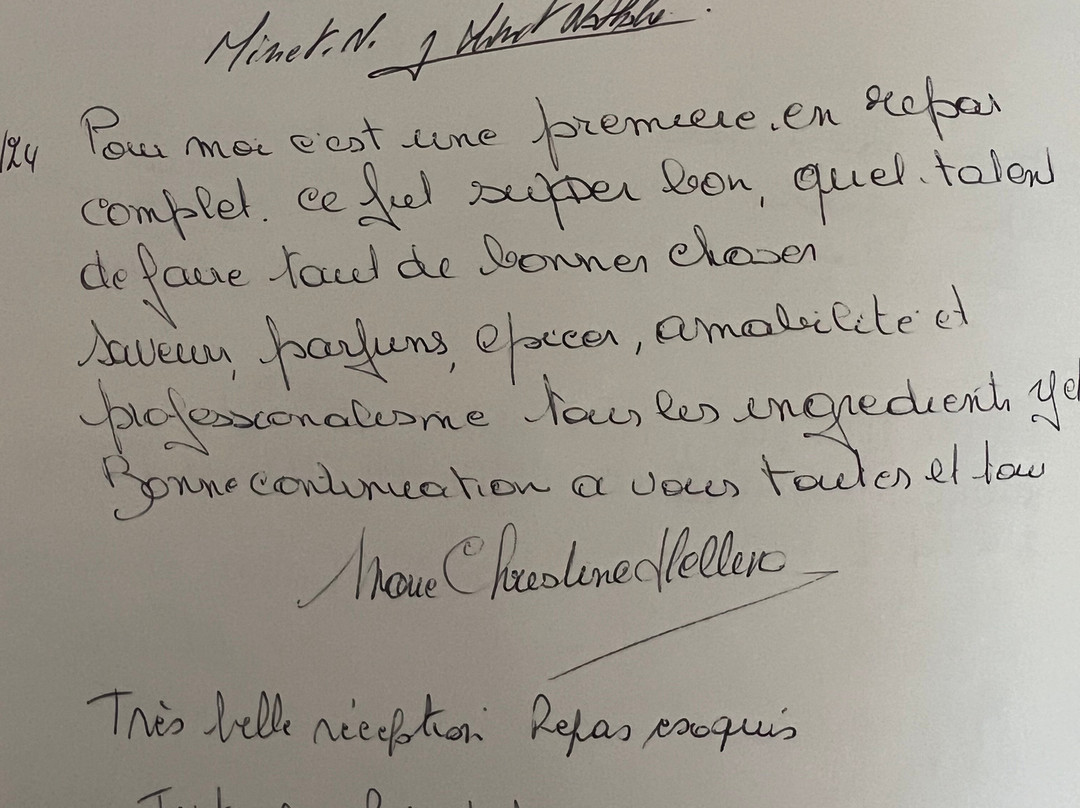 Minet. N.
/24 Pour moi c'est une premiere en repas
complet. ce fut super bon, quel talent
de faire tout de bonnes choses
saveurs, parfums, epices, amabilité et
professionalisme tous les ingredients y
Bonne continuation a vous toutes et tous
Marie Christine
Très belle réception Repas exquis